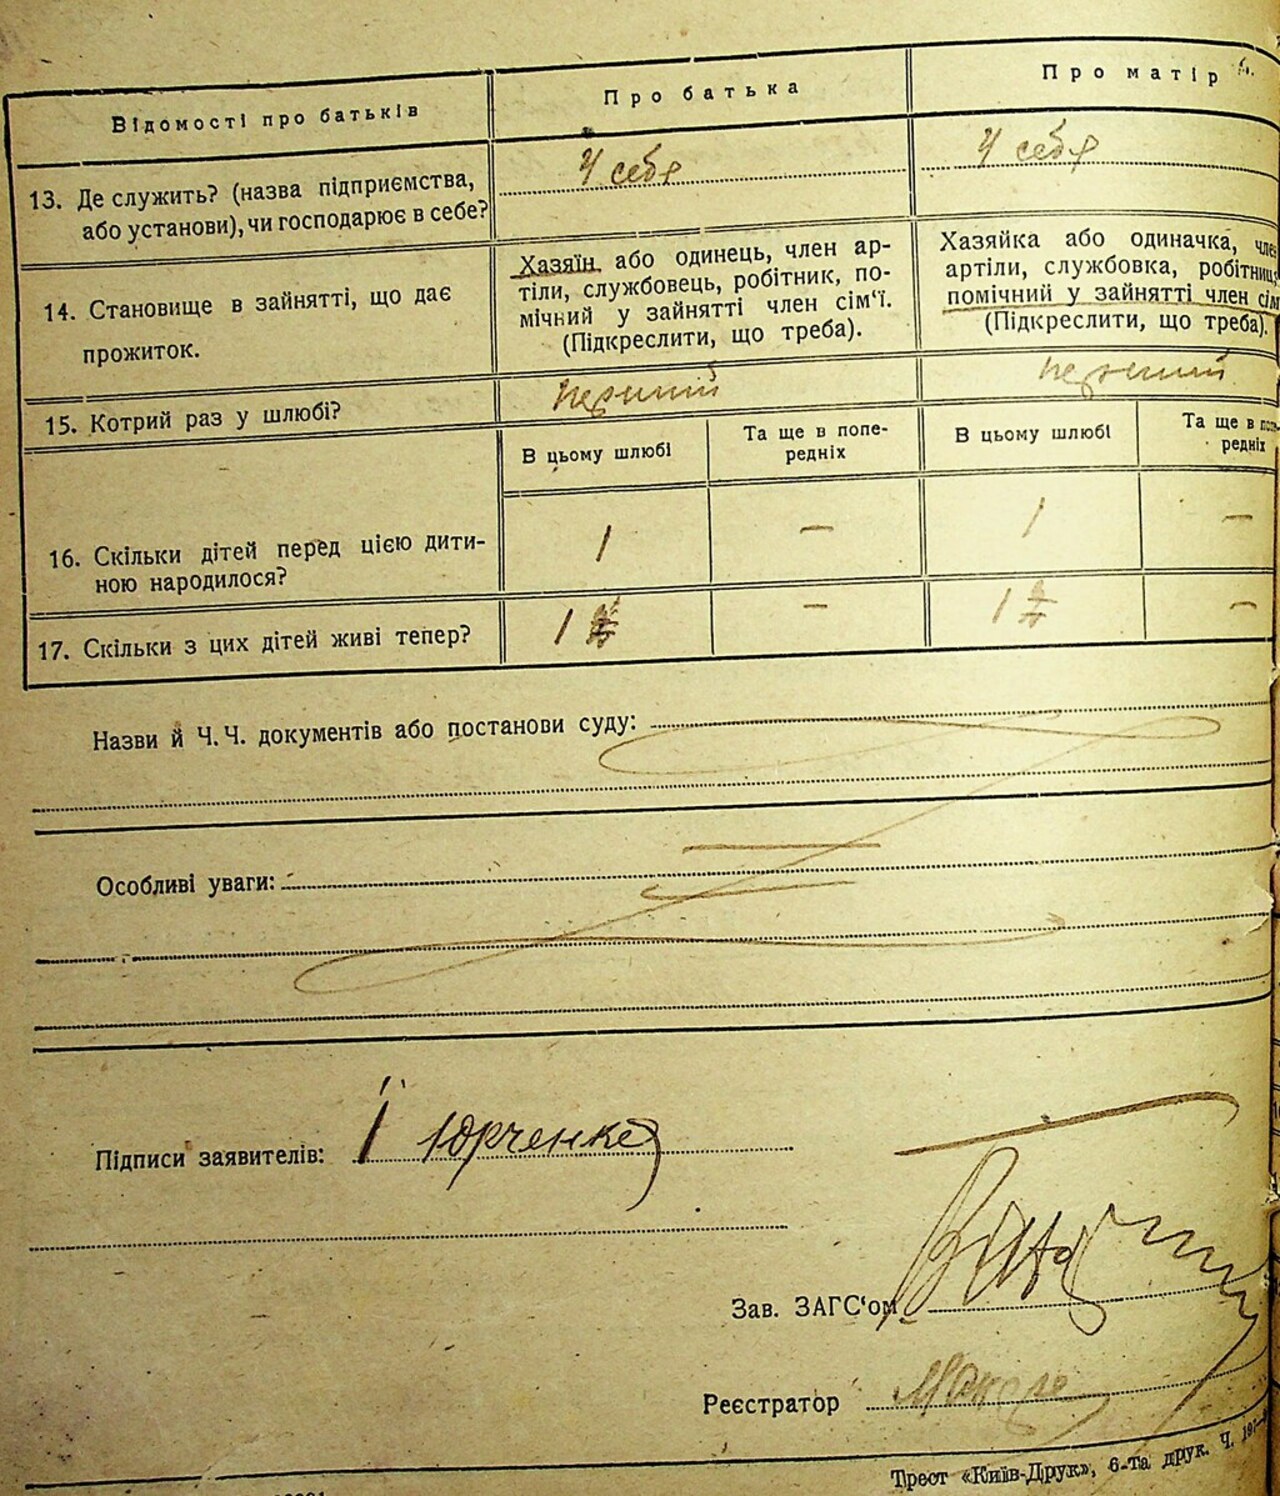 Відомості про батьків
Про батька
Про матір
13. Де служить? (назва підприємства,
або установи), чи господарює в себе?
У себя
У себя
14. Становище в зайнятті, що дає
прожиток.
Хазяїн або одинець, член ар-
тілі, службовець, робітник, по-
мічний у зайнятті член сім'ї.
(Підкреслити, що треба).
Хазяйка або одиначка, член
артілі, службовка, робітниця,
помічний у зайнятті член сім
(Підкреслити, що треба).
15. Котрий раз у шлюбі?
перший
перший
В цьому шлюбі
Та ще в попе-
редніх
В цьому шлюбі
Та ще в попе-
редніх
16. Скільки дітей перед цією дити-
ною народилося?
1
—
1
—
17. Скільки з цих дітей живі тепер?
1
—
1
—
Назви й Ч.Ч. документів або постанови суду:
Особливі уваги:
Підписи заявителів: Ї Юрченко
Зав. ЗАГС'ом
Реєстратор
Трест «Київ-Друк», 6-та друк. Ч.